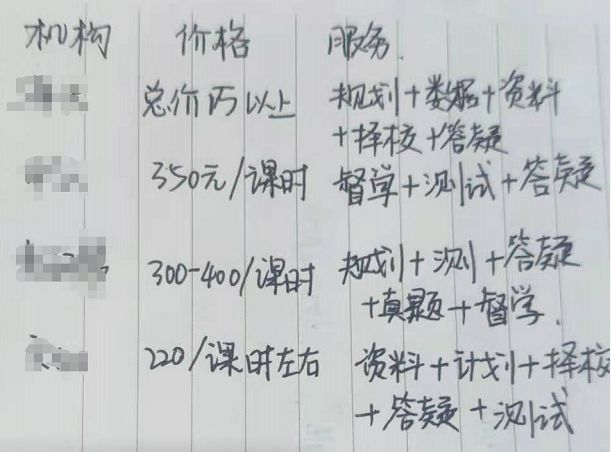 机构 价格 服务.
总价万以上 规划+数据+资料
+择校+答疑
350元/课时 督学+测试+答疑
300-400/课时 规划+测+答疑
+真题+督学.
220/课时左右 资料+计划+择校
+答疑+测试